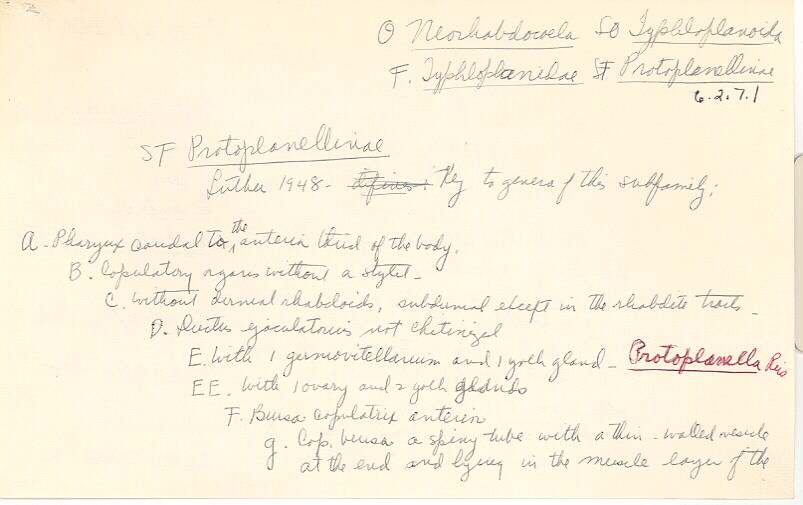 O Neorhabdocoela SO Typhloplanoida
F. Typhloplanidae SF Protoplanellinae
6.2.7.1
SF Protoplanellinae
Luther 1948 - defines: Key to genera of this subfamily:
A - Pharynx caudal to the anterior third of the body.
B. Copulatory organs without a stylet -
C. Without dermal rhabdoids, subdermal except in the rhabdite tracts -
D. Ductus ejaculatorius not chitinized
E. With 1 germovitellarium and 1 yolk gland - Protoplanella Reis
EE. With 1 ovary and 2 yolk glands
F. Bursa copulatrix anterior
g. Cop. bursa a spiny tube with a thin-walled vesicle
at the end and lying in the muscle layer of the